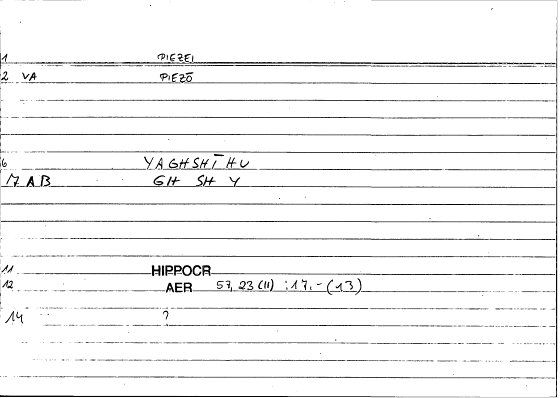 1 PIEZEI
2 VA PIEZŌ
6 YAGHSHĪHU
17 AB GH SH Y
11 HIPPOCR
12 AER 57, 23 (11) : 17.-(13)
14 ?